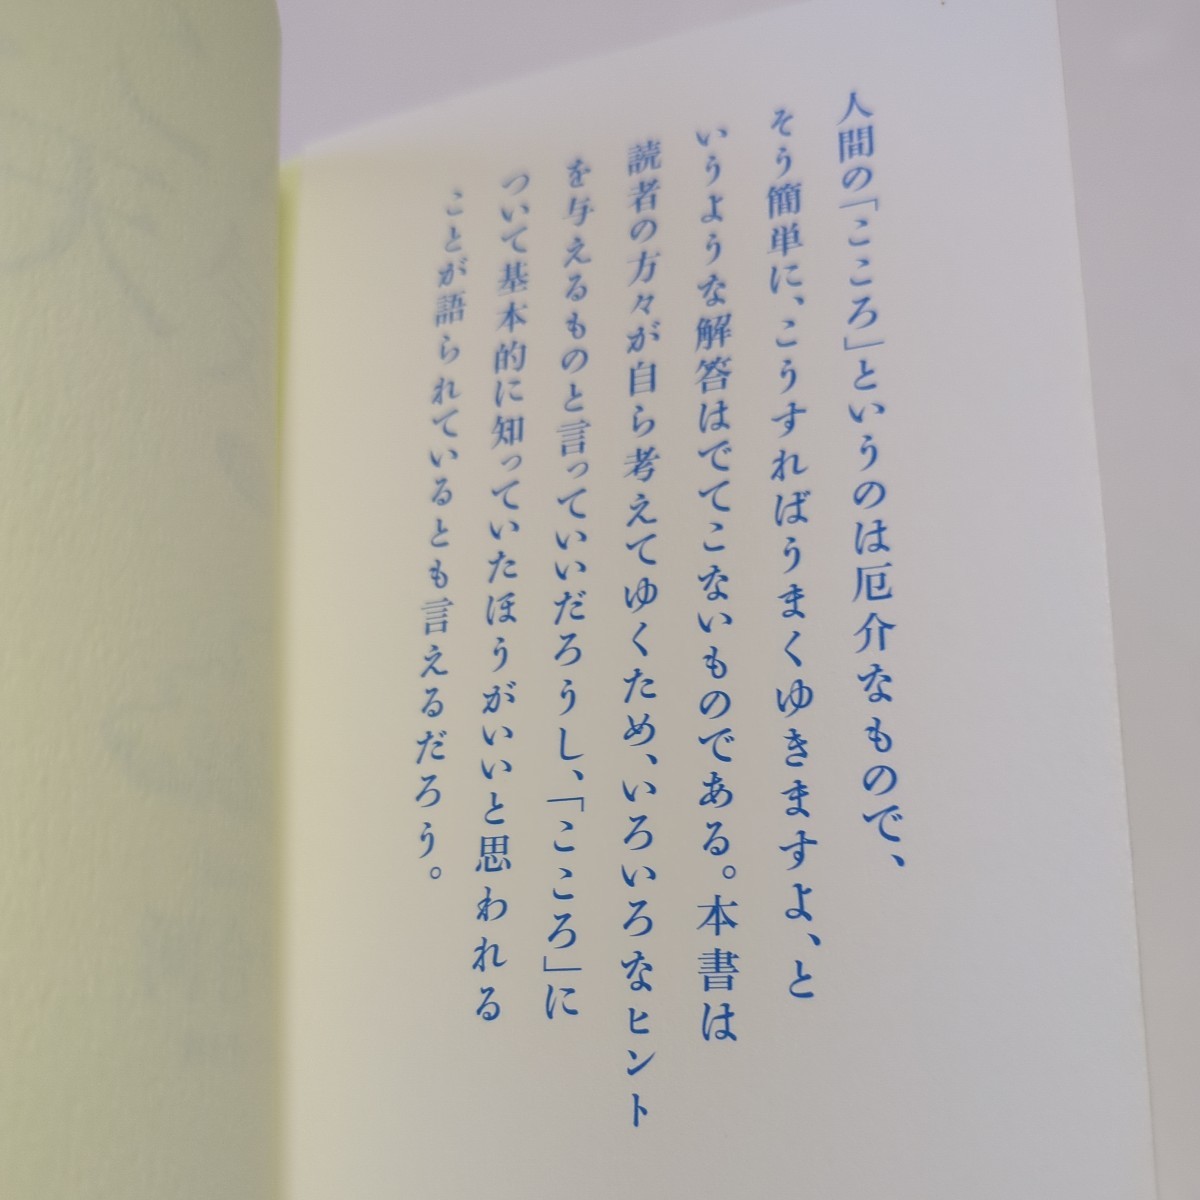 人間の「こころ」というのは厄介なもので、
そう簡単に、こうすればうまくゆきますよ、と
いうような解答はでてこないものである。本書は
読者の方々が自ら考えてゆくため、いろいろなヒント
を与えるものと言っていいだろうし、「こころ」に
ついて基本的に知っていたほうがいいと思われる
ことが語られているとも言えるだろう。